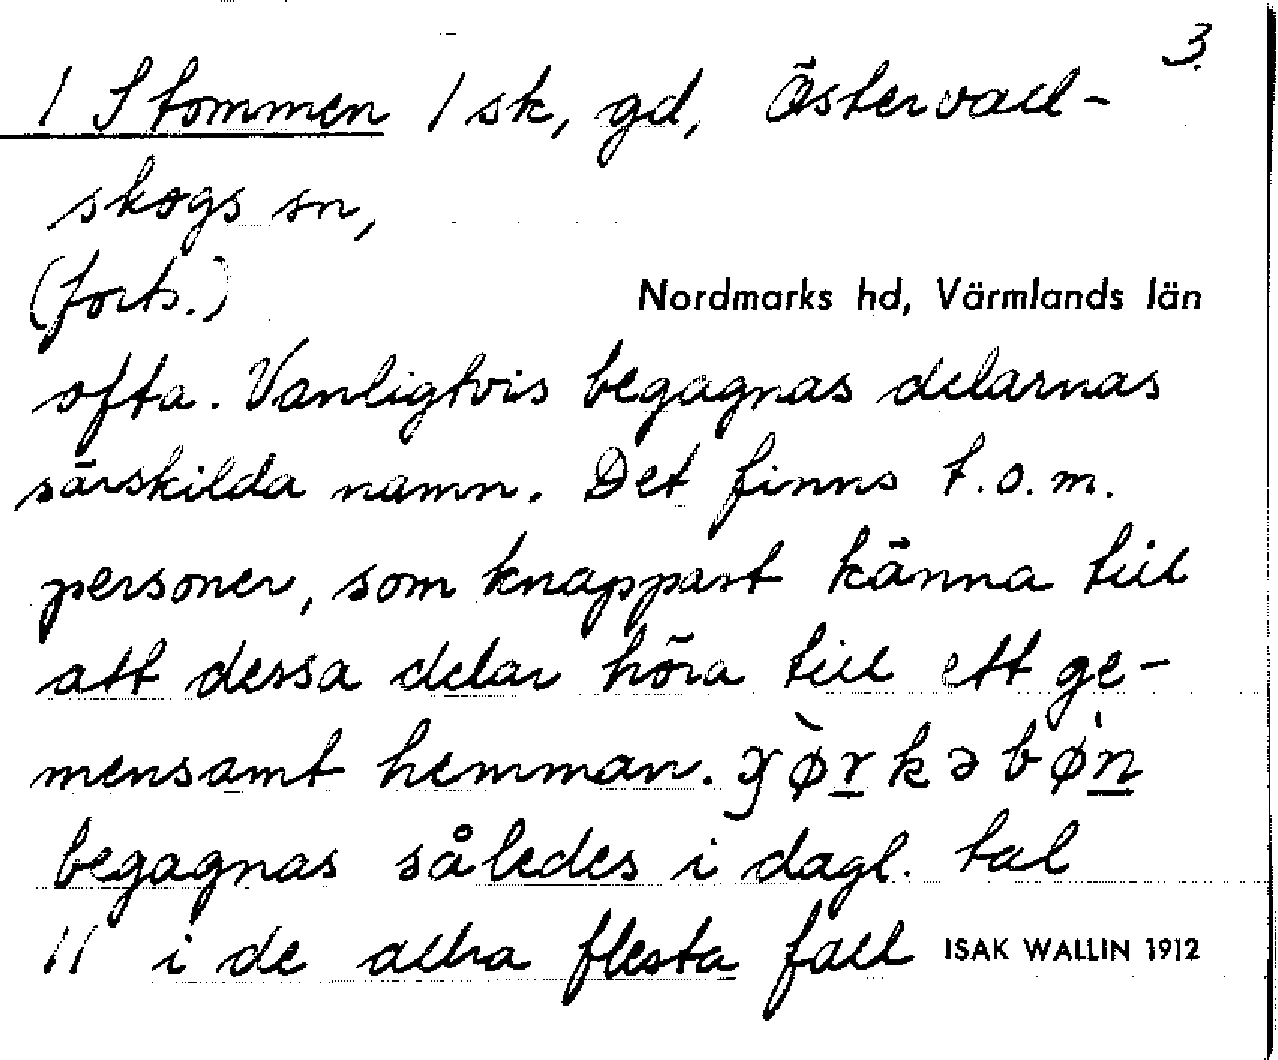 3.
/ Stommen / sk, gd, Östervall-
skogs sn,
(forts.)
Nordmarks hd, Värmlands län
ofta. Vanligtvis begagnas delarnas
särskilda namn. Det finns t.o.m.
personer, som knappast känna till
att dessa delar höra till ett ge-
mensamt hemman.
begagnas således i dagl. tal
// i de allra flesta fall
ISAK WALLIN 1912